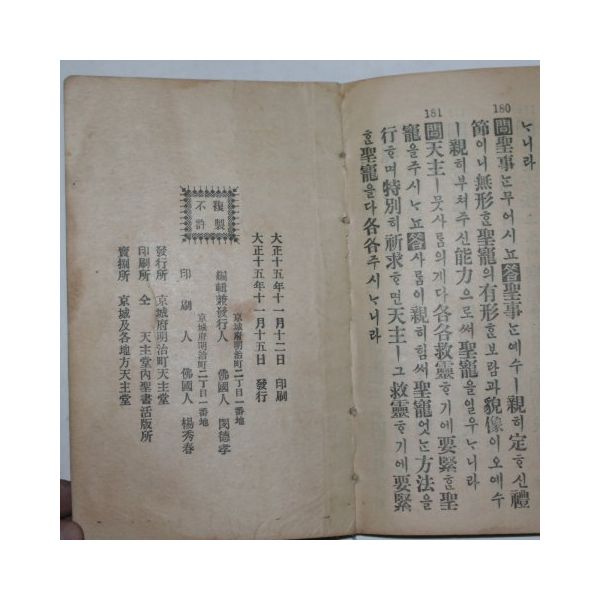 180
ᄂᆞ니라
問聖事ᄂᆞᆫ무어시뇨答聖事ᄂᆞᆫ예수ㅣ親히定ᄒᆞ신禮
節이니無形ᄒᆞᆫ聖寵의有形ᄒᆞᆫ보람과貌像이오예수
ㅣ親히부쳐주신能力으로써聖寵을일우ᄂᆞ니라
181
問天主ㅣ뭇사ᄅᆞᆷ의게다各各救靈ᄒᆞ기에要緊ᄒᆞᆫ聖
寵을주시ᄂᆞ뇨答사ᄅᆞᆷ이親히힘써聖寵엇ᄂᆞᆫ方法을
行ᄒᆞ며特別히祈求ᄒᆞ면天主ㅣ그救靈ᄒᆞ기에要緊
ᄒᆞᆫ聖寵을다各各주시ᄂᆞ니라
大正十五年十一月十二日 印刷
大正十五年十一月十五日 發行
複製
不許
京城府明治町二丁目一番地
編輯兼發行人 佛國人 閔德孝
京城府明治町二丁目一番地
印刷人 佛國人 楊秀春
發行所 京城府明治町天主堂
印刷所 仝 天主堂內聖書活版所
賣捌所 京城及各地方天主堂